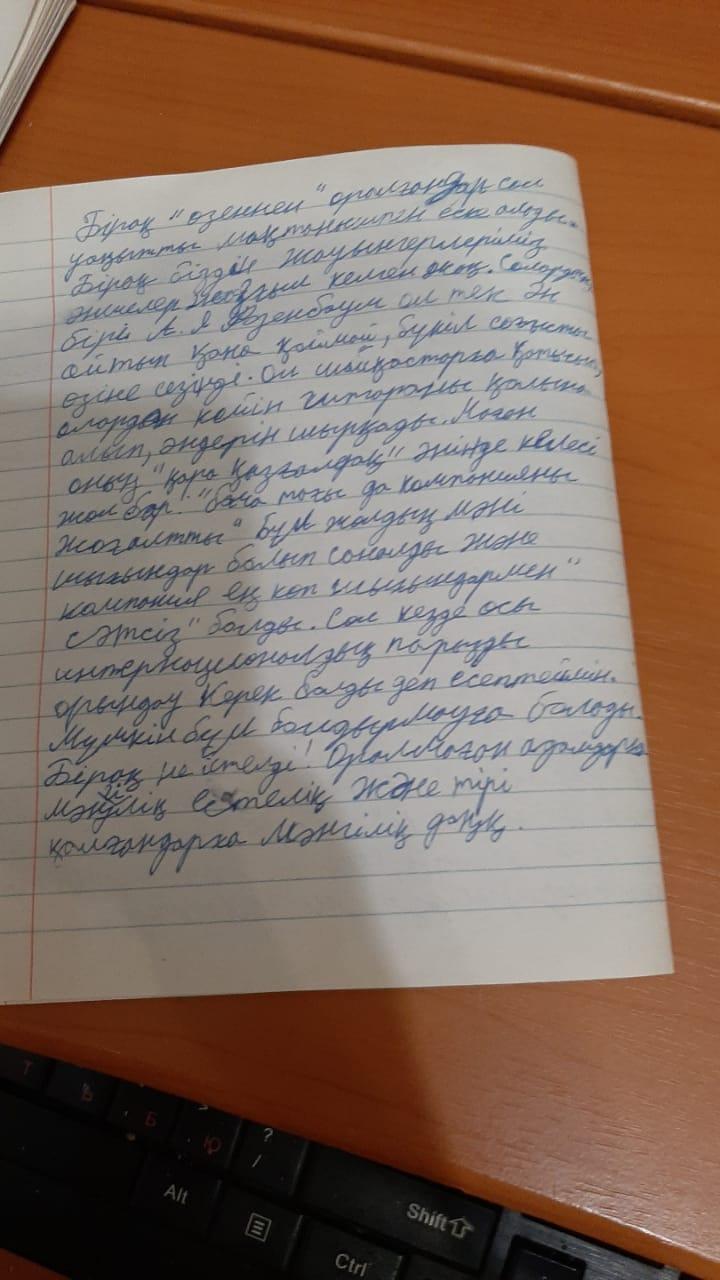 Бірақ "өзеннен" оралғандар сол
уақытты мақтанышпен еске алады.
Бірақ біздің жауынгерлеріміз
әншелер жазғым келген жоқ. Солардың
бірі А. Я Розенбаум ол тек ән
айтып қана қоймай, бүкіл соғысты
өзіне сезінді. Ол шайқастарға қатысып,
олардан кейін гитараны қолына
алып, әндерін шырқады. Маған
оның "қара қызғалдақ" әнінде келесі
жол бар! "баға тағы да компанияны
жоғалтты" бұл жолдың мәні
шығындар болып саналды және
компания ең көп шығындармен"
сәтсіз" болды. Сол кезде осы
интернационалдық парызды
орындау керек болды деп есептеймін.
Мүмкін бұл болдырмауға болады.
Бірақ не істелді! Оралмаған адамдарға
мәңгілік естелік және тірі
қалғандарға мәңгілік даңқ.
?
/
Т
Ь
Б
Ю
Alt
Shift
Ctrl